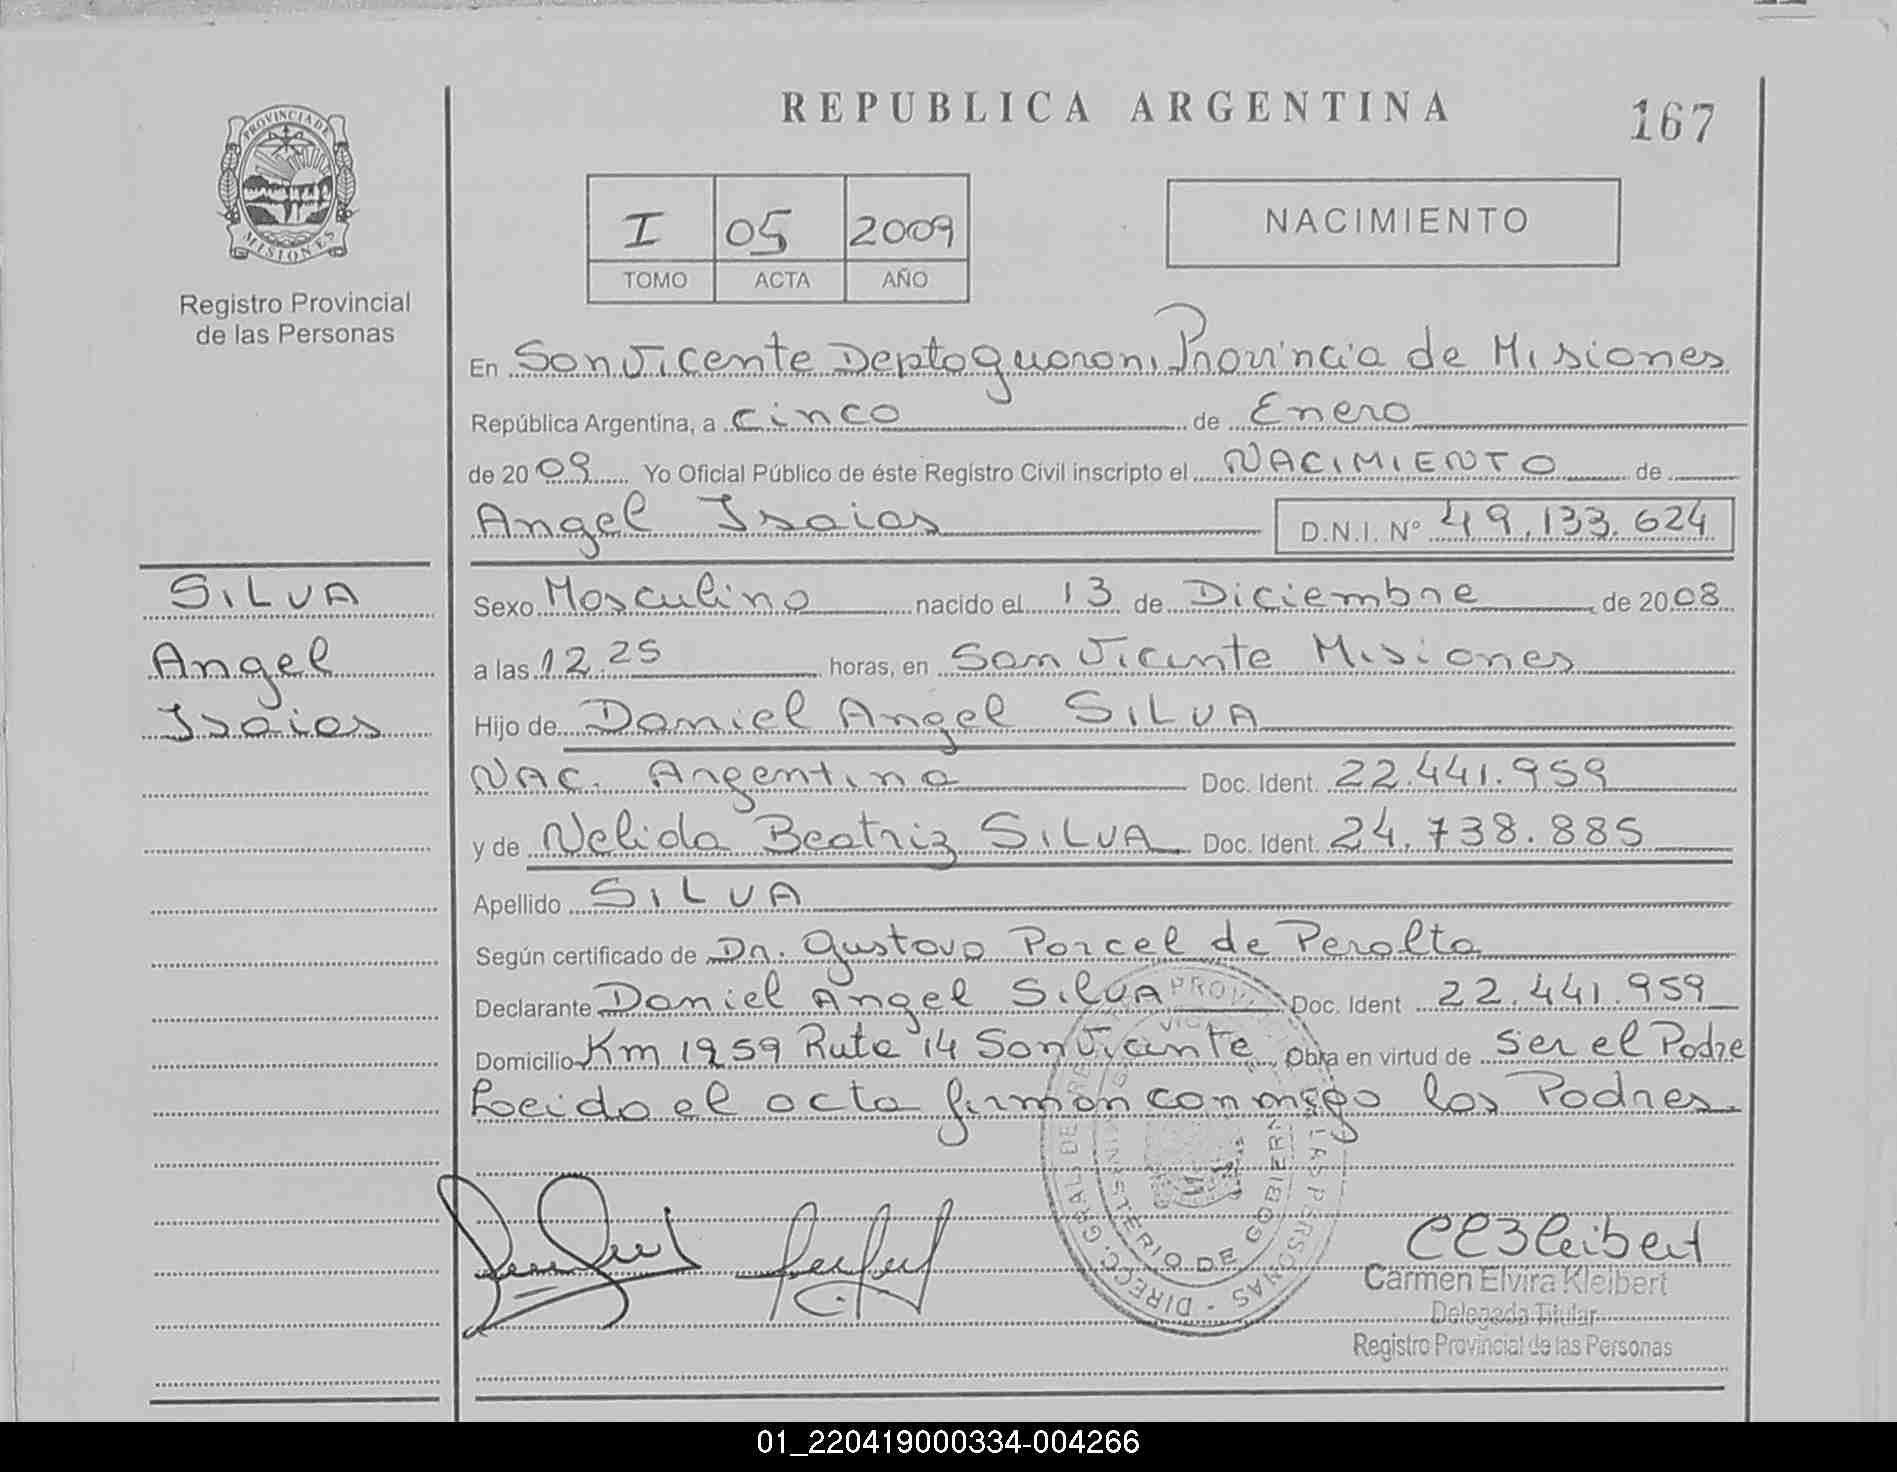 REPUBLICA ARGENTINA
167
PROVINCIA DE
MISIONES
Registro Provincial
de las Personas
I 05 2009
TOMO ACTA AÑO
NACIMIENTO
En San Vicente Depto guarani Provincia de Misiones
República Argentina, a cinco de Enero
de 2009 Yo Oficial Público de éste Registro Civil inscripto el NACIMIENTO de
Angel Isaias D.N.I. Nº 49.133.624
SILVA
Angel
Isaias
Sexo Masculino nacido el 13 de Diciembre de 2008
a las 12.25 horas, en San Vicente Misiones
Hijo de Daniel Angel SILVA
NAC. Argentina Doc. Ident. 22.441.959
y de Nelida Beatriz SILVA Doc. Ident. 24.738.885
Apellido SILVA
Según certificado de Dr. Gustavo Porcel de Peralta
Declarante Daniel Angel SilvA Doc. Ident 22.441.959
Domicilio Km 1259 Ruta 14 San Vicente Obra en virtud de ser el Padre
Leido el acta firman conmigo los Padres.
DIRECC. GRAL. DE LAS PERSONAS
MINISTERIO DE GOBIERN
CEKleibert
Carmen Elvira Kleibert
Delegada Titular
Registro Provincial de las Personas
01_220419000334-004266